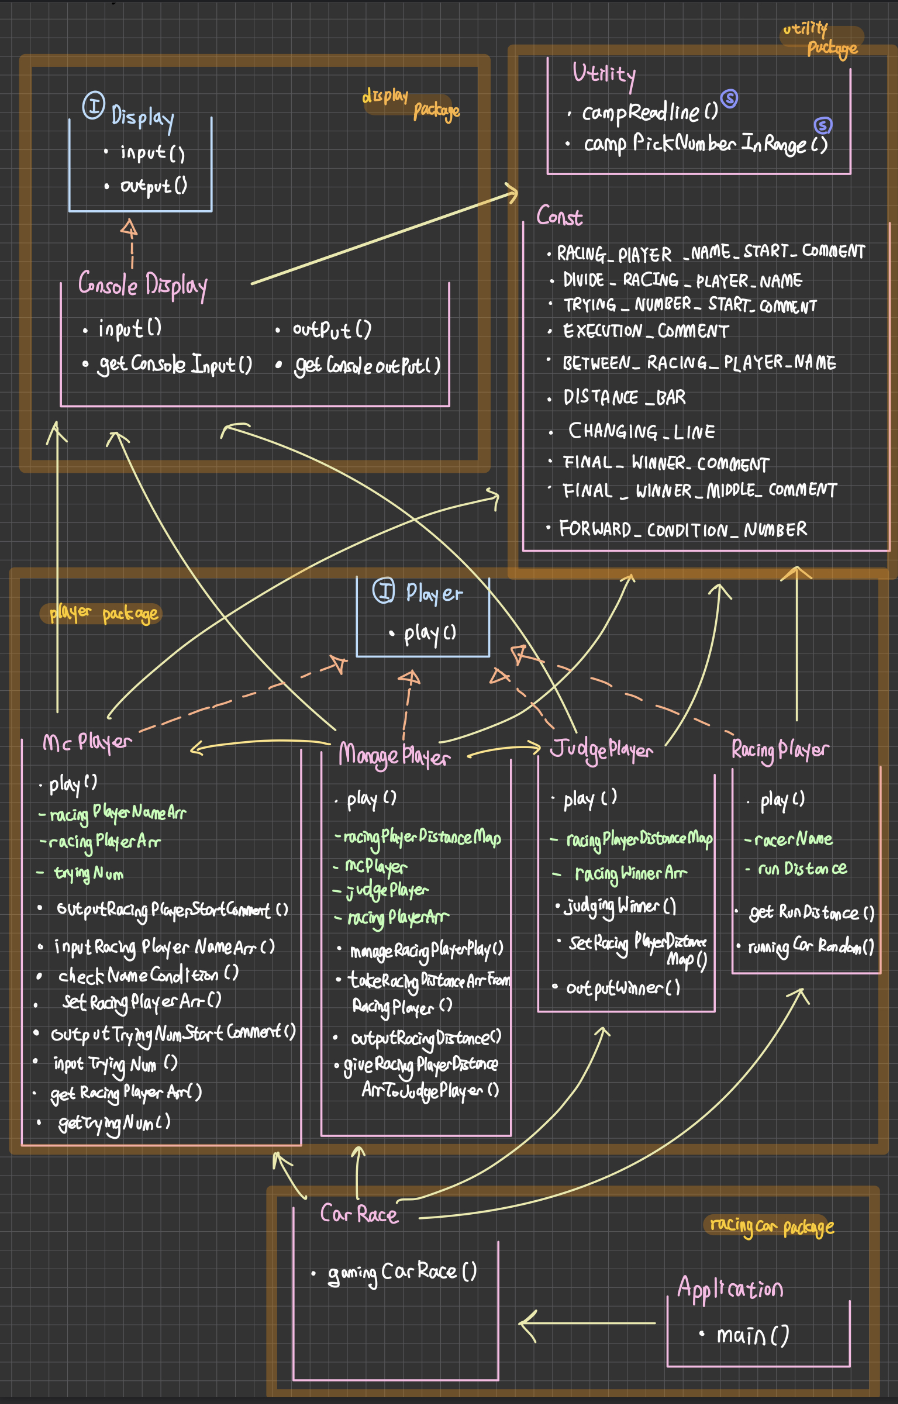 utility
package
display
package
I Display
• input()
• output()
Console Display
• input()
• outPut()
• getConsole Input()
• getConsoleoutPut()
Utility
• campReadline() S
• camp PickNumber InRange() S
Const
• RACING_PLAYER _NAME_START_COMMENT
• DIVIDE_RACING_PLAYER_NAME
• TRYING_NUMBER_START_COMMENT
• EXECUTION_COMMENT
• BETWEEN_RACING_PLAYER_NAME
• DISTANCE_BAR
• CHANGING_LINE
• FINAL_WINNER_COMMENT
• FINAL_WINNER_MIDDLE_COMMENT
• FORWARD_CONDITION_NUMBER
player package
I Player
• play()
McPlayer
• play()
- racingPlayerNameArr
- racingPlayerArr
- tryingNum
• outputRacingPlayerStartComment()
• inputRacing Player NameArr()
• checkNameCondition()
• setRacingPlayerArr()
• outputTryingNumStartComment()
• inputTryingNum()
• getRacingPlayerArr()
• getTryingNum()
ManagePlayer
• play()
- racingPlayerDistanceMap
- mcPlayer
- judgePlayer
- racingPlayerArr
• manageRacingPlayerPlay()
• takeRacingDistanceArrFrom
RacingPlayer()
• outputRacingDistance()
• giveRacingPlayerDistance
ArrToJudgePlayer()
JudgePlayer
• play()
- racingPlayerDistanceMap
- racingWinnerArr
• judgingWinner()
• SetRacing PlayerDistance
Map()
• outputWinner()
RacingPlayer
• play()
- racerName
- runDistance
• getRunDistance()
• runningCarRandom()
racingcar package
CarRace
• gamingCarRace()
Application
• main()